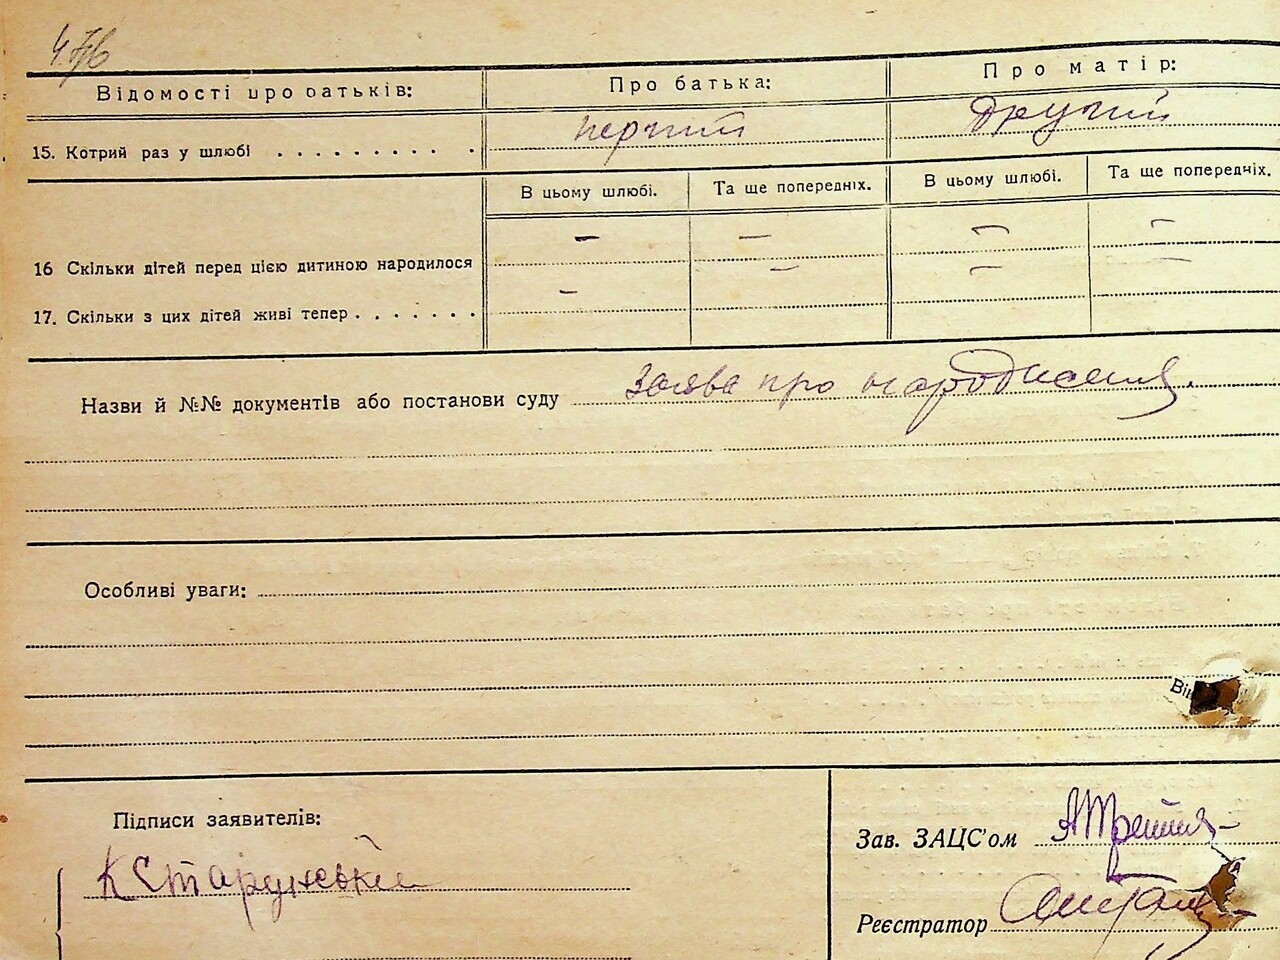 Відомості про батьків: Про батька: Про матір:
15. Котрий раз у шлюбі . . . . . . . . . . перший другий
В цьому шлюбі. Та ще попередніх. В цьому шлюбі. Та ще попередніх.
— — — —
16 Скільки дітей перед цією дитиною народилося — — —
17. Скільки з цих дітей живі тепер . . . . . . . —
Назви й №№ документів або постанови суду заява про народження.
Особливі уваги:
Підписи заявителів:
Зав. ЗАЦС'ом
К
Реєстратор